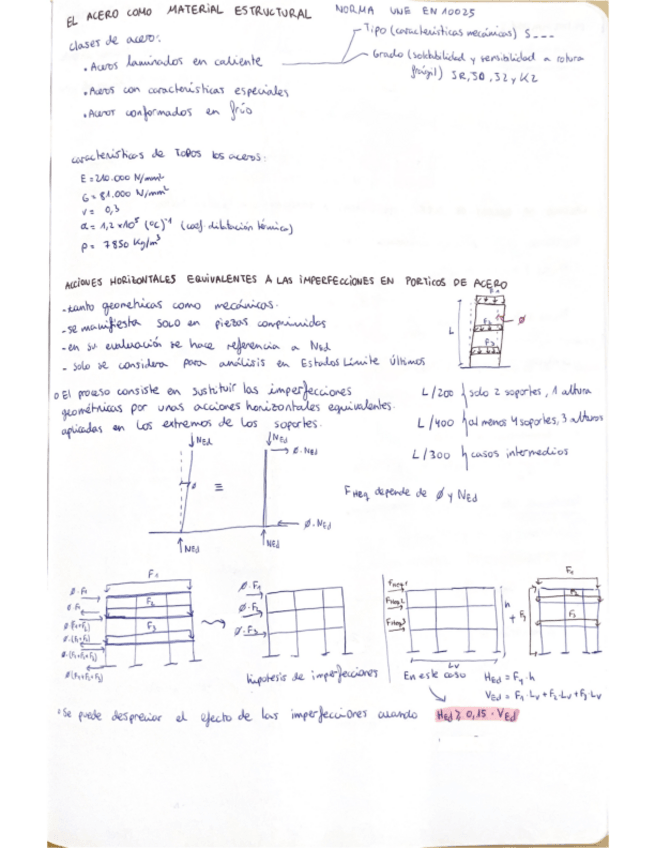 EL ACERO COMO MATERIAL ESTRUCTURAL NORMA UNE EN 10025
clases de acero:
• Aceros laminados en caliente
Tipo (características mecánicas) S _ _ _
Grado (soldabilidad y sensibilidad a rotura
frágil) JR, J0, J2 y K2
• Aceros con características especiales
• Aceros conformados en frío
características de TODOS los aceros:
E = 210.000 N/mm²
G = 81.000 N/mm²
ν = 0,3
α = 1,2 x 10⁵ (ºC)⁻¹ (coef. dilatación térmica)
ρ = 7850 Kg/m³
ACCIONES HORIZONTALES EQUIVALENTES A LAS IMPERFECCIONES EN PORTICOS DE ACERO
- tanto geométricas como mecánicas.
- se manifiesta SOLO en piezas comprimidas
- en su evaluación se hace referencia a NEd
- solo se considera para análisis en Estados Límite Últimos
F1
F2
F3
L
Ø
El proceso consiste en sustituir las imperfecciones
geométricas por unas acciones horizontales equivalentes.
aplicadas en los extremos de los soportes.
L/200 solo 2 soportes, 1 altura
L/400 al menos 4 soportes, 3 alturas
L/300 casos intermedios
NEd NEd
Ø·NEd
Ø ≡
FHeq depende de Ø y NEd
Ø·NEd
NEd NEd
F1
F2
F3
Ø·F1
Ø·F1
Ø·(F1+F2)
Ø·(F1+F2)
Ø·(F1+F2+F3)
Ø(F1+F2+F3)
Ø·F1
Ø·F2
Ø·F3
hipótesis de imperfecciones
FHeq1
FHeq2
FHeq3
h
Lv
+
F1
F2
F3
En este caso HEd = Fq·h
VEd = F1·Lv+F2·Lv+F3·Lv
• Se puede despreciar el efecto de las imperfecciones cuando HEd ≥ 0,15·VEd